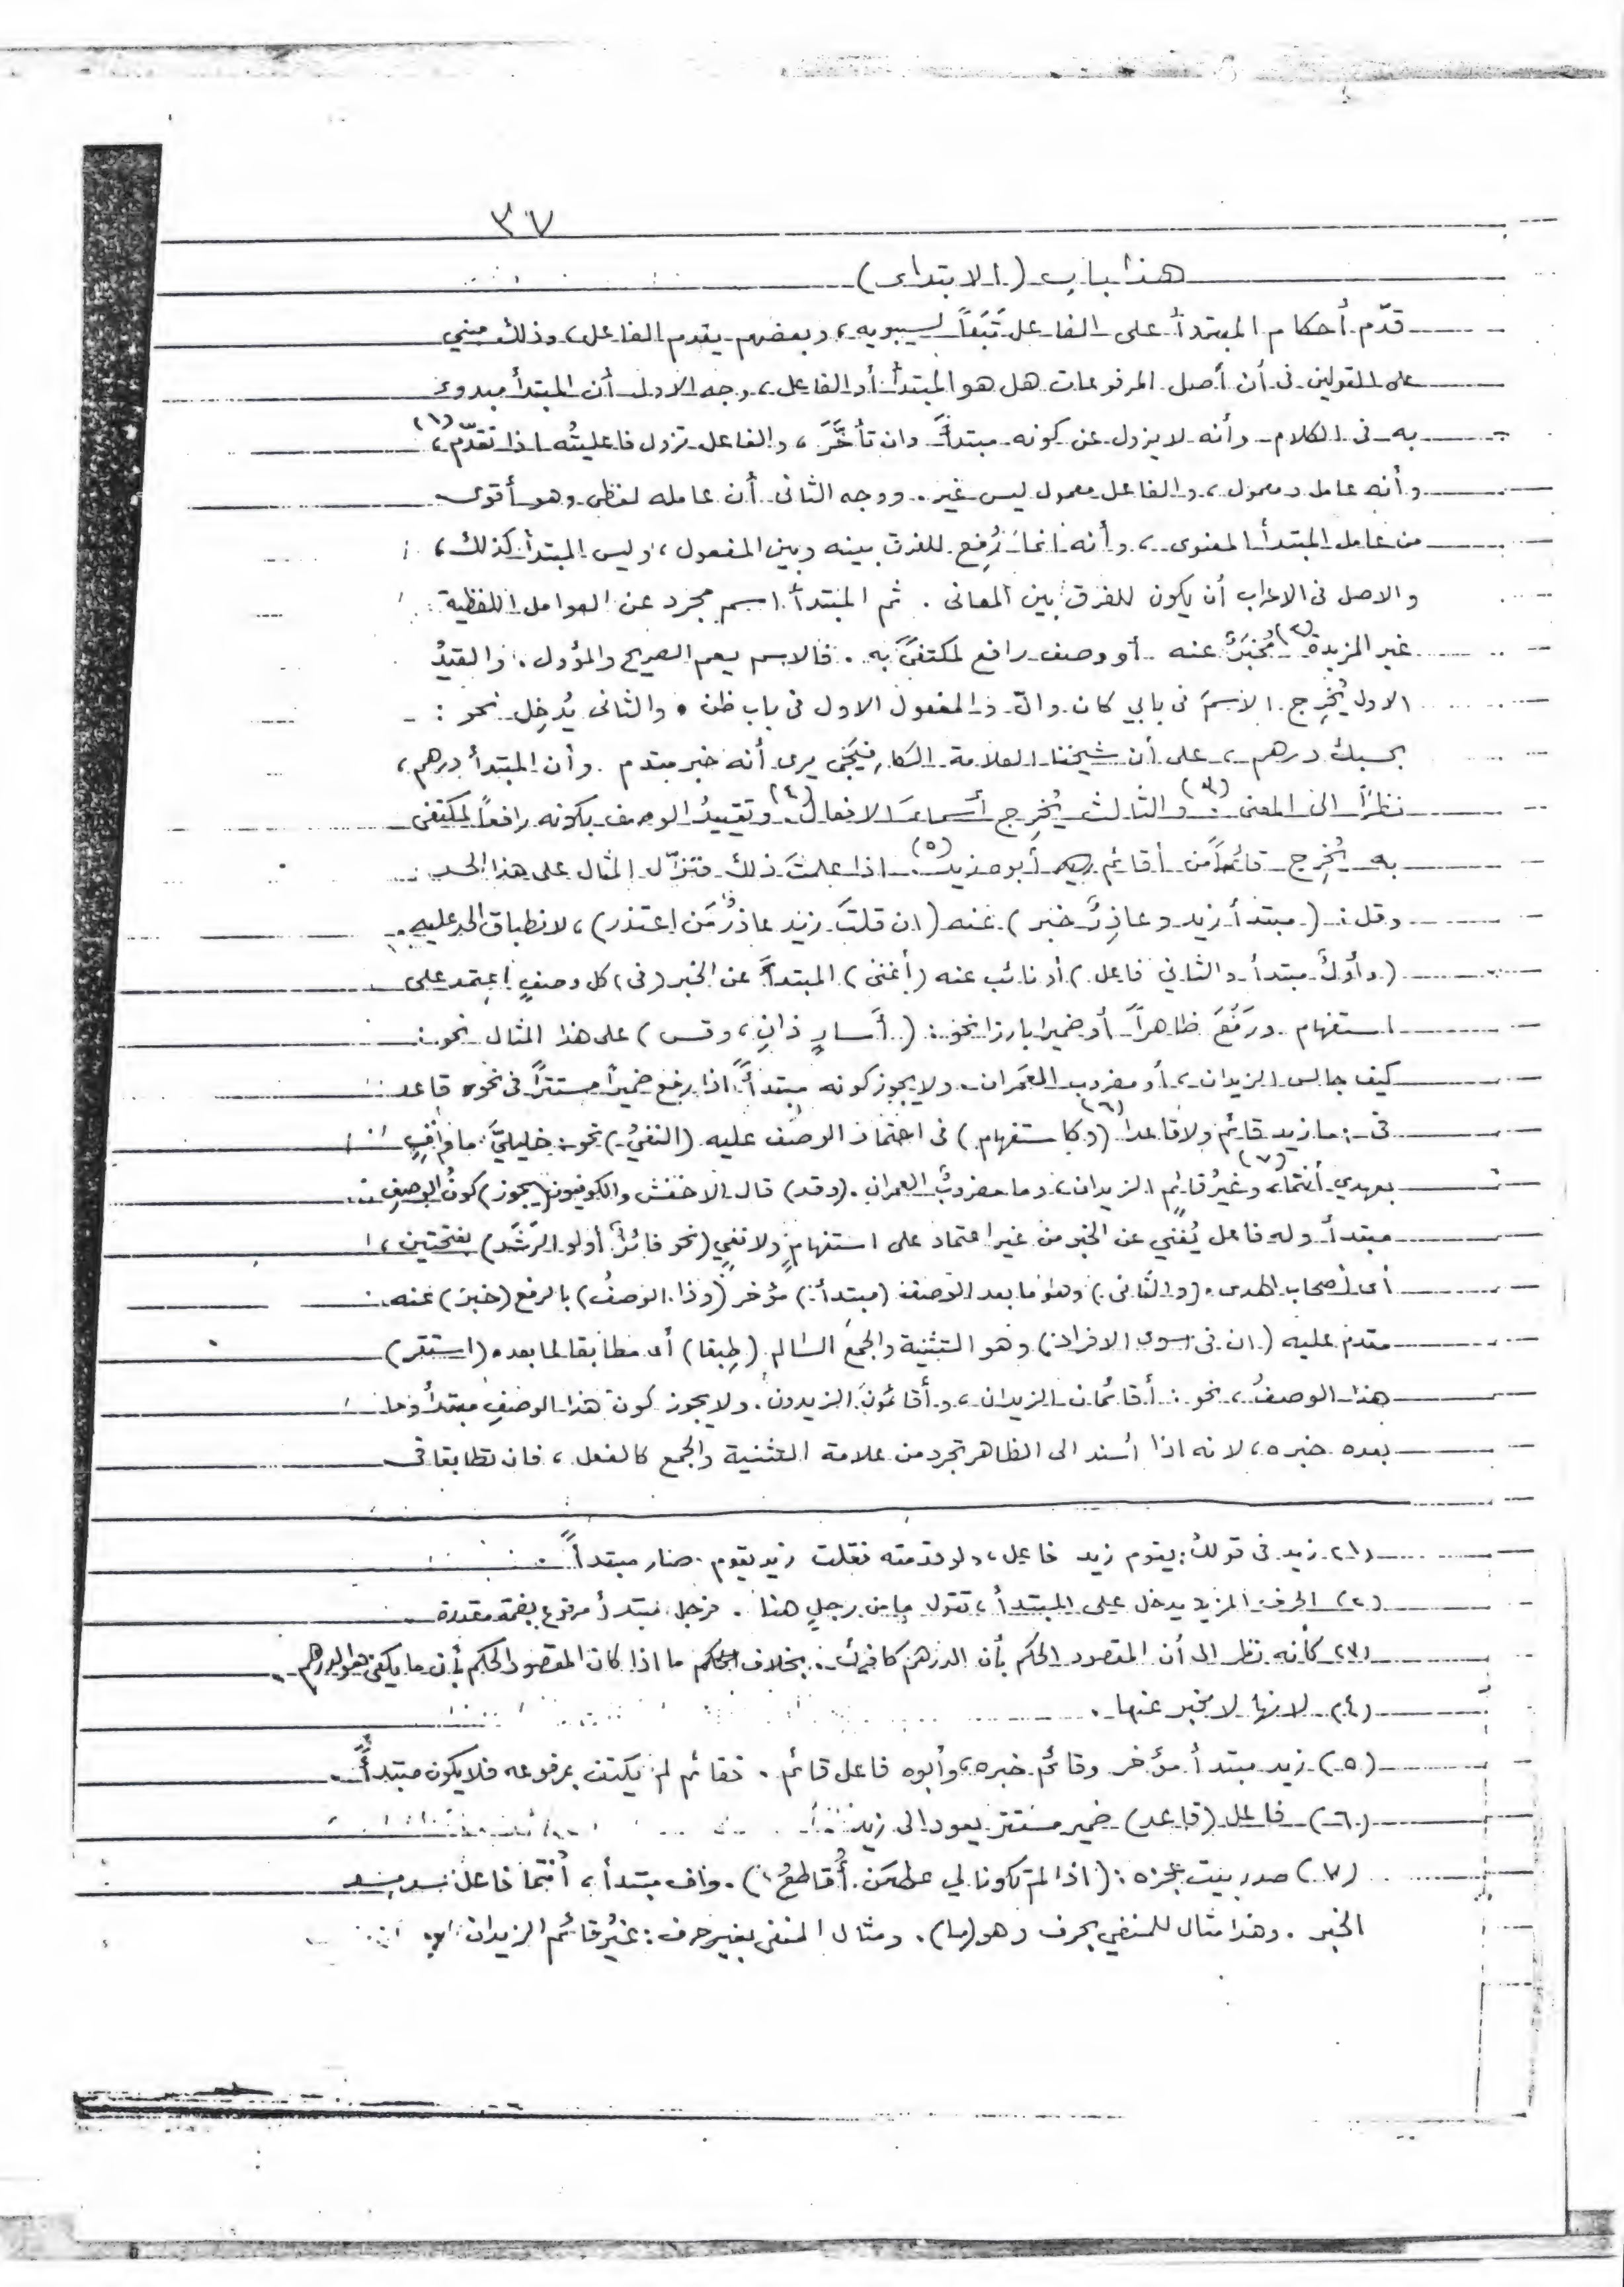 ٣٧
هذا باب (الابتداء)
قدّم أحكام المبتدأ على الفاعل تَبَعاً لسيبويه، وبعضهم يقدم الفاعل، وذلك مبني
على القولين فى أن أصل المرفوعات هل هو المبتدأ أو الفاعل، وجه الاول أن المبتدأ مبدوء
به فى الكلام وأنه لا يزول عن كونه مبتدأً وان تأخَّرَ، والفاعل تزول فاعليتُه اذا تقدّم،(١)
وأنه عامل ومعمول، والفاعل معمول ليس غير. ووجه الثانى أن عامله لفظى وهو أقوى
من عامل المبتدأ المعنوى، وأنه انما رُفِع للفرق بينه وبين المفعول، وليس المبتدأ كذلك،
والاصل فى الاعراب أن يكون للفرق بين المعانى. ثم المبتدأ اسم مجرد عن العوامل اللفظية
غير المزيدة(٢) مُخبَرٌ عنه أو وصف رافع لمكتفىً به. فالاسم يعم الصريح والمؤول. والقيدُ
الاول يُخرِج الاسمَ فى بابي كان وانّ والمفعول الاول فى باب ظن. والثانى يُدخِل نحو:
بحسبك درهم، على أن شيخنا العلامة الكافِيَجى يرى أنه خبر مقدم وأن المبتدأ درهم،
نظرًا الى المعنى(٣). والثالث يُخرِج أسماءَ الافعال(٤). وتقييدُ الوصف بكونه رافعاً لمكتفى
به يُخرِج قائماً من أقائم أبوه زيد(٥). اذا علمتَ ذلك فنزّل المثال على هذا الحد
وقل: (مبتدأ زيد وعاذِرٌ خبر) عنه (ان قلتَ زيد عاذرٌ مَن اعتذر)، لانطباق الحد عليه.
(وأوّلٌ مبتدأ والثاني فاعل) أو نائب عنه (أغنى) المبتدأَ عن الخبر (فى) كل وصفٍ اعتمد على
استفهام ورَفَعَ ظاهراً أو ضميرا بارزا نحو: (أَسارٍ ذانِ، وقس) على هذا المثال نحو:
كيف جالس الزيدان، أو مضروب العَمران. ولا يجوز كونه مبتدأً اذا رفع ضميرًا مستترًا فى نحو قاعد
فى: ما زيد قائم ولا قاعد(٦) (وكاستفهام) فى اعتماد الوصف عليه (النفيُ) نحو: خليليَّ ما وافٍ
بعهدي أنتما،(٧) وغيرُ قائمٍ الزيدان، وما مضروبٌ العمران. (وقد) قال الاخفش والكوفيون (يجوز) كونُ الوصفِ
مبتدأً وله فاعل يُغني عن الخبر من غير اعتماد على استفهامٍ ولا نفيٍ (نحو فائزٌ أولو الرَّشَد) بفتحتين،
أى أصحاب الهدى. (والثانى) وهو ما بعد الوصف (مبتدأ) مؤخر (وذا الوصفُ) بالرفع (خبرٌ) عنه
مقدم عليه (ان فى سوى الافراد) وهو التثنية والجمع السالم (طِبقا) أى مطابقا لما بعده (استقر)
هذا الوصفُ، نحو: أقائمان الزيدان، وأقائمون الزيدون. ولا يجوز كون هذا الوصفِ مبتدأً وما
بعده خبره، لانه اذا اُسند الى الظاهر تجرد من علامة التثنية والجمع كالفعل، فان تطابقا فى
(١) زيد فى قولك: يقوم زيد فاعل، ولو قدمته فقلت زيد يقوم صار مبتدأً.
(٢) الحرف المزيد يدخل على المبتدأ، تقول ما من رجلٍ هنا. فرجل مبتدأ مرفوع بضمة مقدرة
(٣) كأنه نظر الى أن المقصود الحكم بأن الدرهم كافيك. بخلاف ما اذا كان المقصود الحكم بأن ما يكفى هو الدرهم.
(٤) لانها لا مخبر عنها.
(٥) زيد مبتدأ مؤخر وقائم خبره، وأبوه فاعل قائم. فقائم لم يكتف بمرفوعه فلا يكون مبتدأً.
(٦) فاعل (قاعد) ضمير مستتر يعود الى زيد
(٧) صدر بيت عجزه: (اذا لم تكونا لي على مَن أُقاطعُ). واف مبتدأ، أنتما فاعل سد مسد
الخبر. وهذا مثال للمنفي بحرف وهو (ما). ومثال المنفى بغير حرف: غيرُ قائم الزيدان